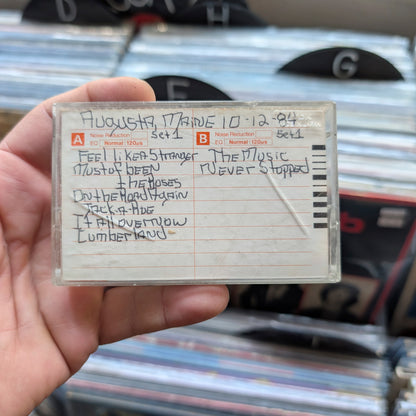 D
H
F
G
AUGUSTA, MAINE 10-12-84
A Noise Reduction Set 1 B Noise Reduction Set 1
EQ Normal 120µs EQ Normal 120µs
FEEL LIKE A STRANGER THE MUSIC
MUST OF BEEN NEVER STOPPED
THE ROSES
ON THE ROAD AGAIN
JACK A ROE
IT ALL OVER NOW
CUMBERLAND